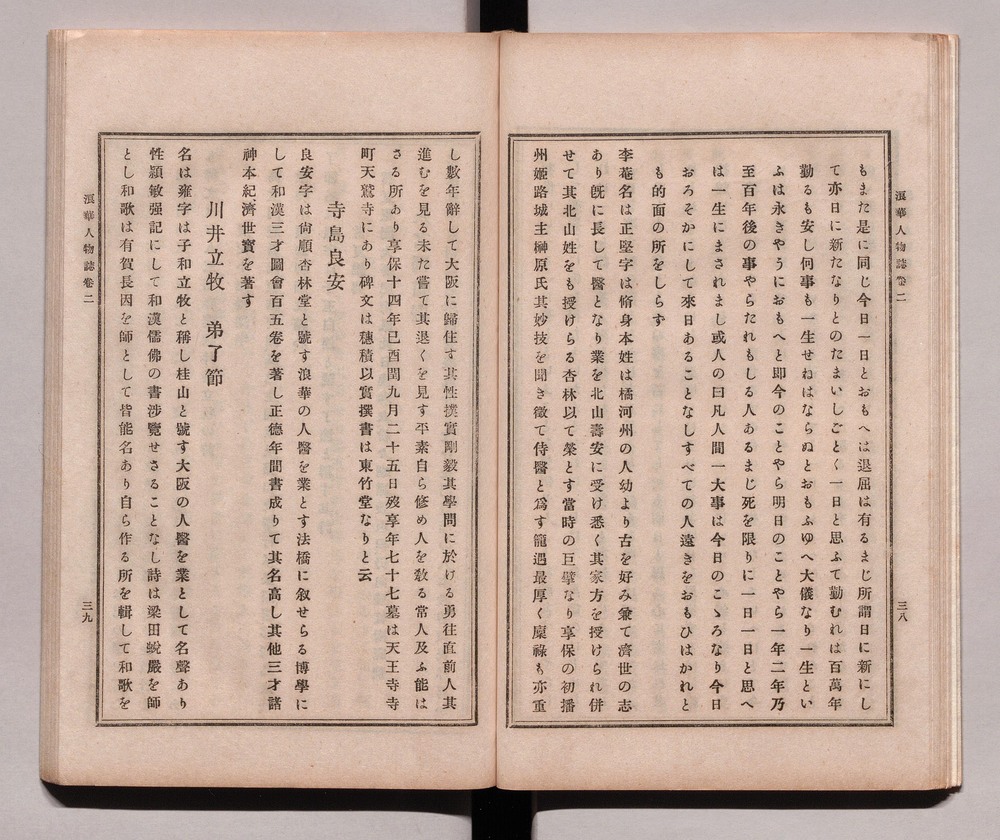 浪華人物誌卷二
三八
もまた是に同じ今日一日とおもへは退屈は有るまじ所謂日に新にし
て亦日に新たなりとのたまいしごとく一日と思ふて勤むれは百萬年
勤るも安し何事も一生せねはならぬとおもふゆへ大儀なり一生とい
ふは永きやうにおもへと即今のことやら明日のことやら一年二年乃
至百年後の事やらたれもしる人あるまじ死を限りに一日一日と思へ
は一生にまされまし或人の曰凡人間一大事は今日のこゝろなり今日
おろそかにして來日あることなしすべての人遠きをおもひはかれと
も的面の所をしらす
李菴名は正堅字は脩身本姓は橘河州の人幼より古を好み兼て濟世の志
あり既に長して醫となり業を北山壽安に受け悉く其家方を授けられ併
せて其北山姓をも授けらる杏林以て榮とす當時の巨擘なり享保の初播
州姫路城主榊原氏其妙技を聞き徵て侍醫と爲す寵遇最厚く廩祿も亦重
し數年辭して大阪に歸住す其性撲實剛毅其學問に於ける勇往直前人其
進むを見る未た嘗て其退くを見す平素自ら修め人を敎る常人及ふ能は
さる所あり享保十四年巳酉閏九月二十五日歿享年七十七墓は天王寺寺
町天鷲寺にあり碑文は穗積以實撰書は東竹堂なりと云
寺島良安
良安字は尙順杏林堂と號す浪華の人醫を業とす法橋に叙せらる博學に
して和漢三才圖會百五卷を著し正德年間書成りて其名高し其他三才諸
神本紀濟世寶を著す
川井立牧　弟了節
名は雍字は子和立牧と稱し桂山と號す大阪の人醫を業として名聲あり
性穎敏强記にして和漢儒佛の書涉覽せさることなし詩は梁田蛻嚴を師
とし和歌は有賀長因を師として皆能名あり自ら作る所を輯して和歌を
浪華人物誌卷二
三九